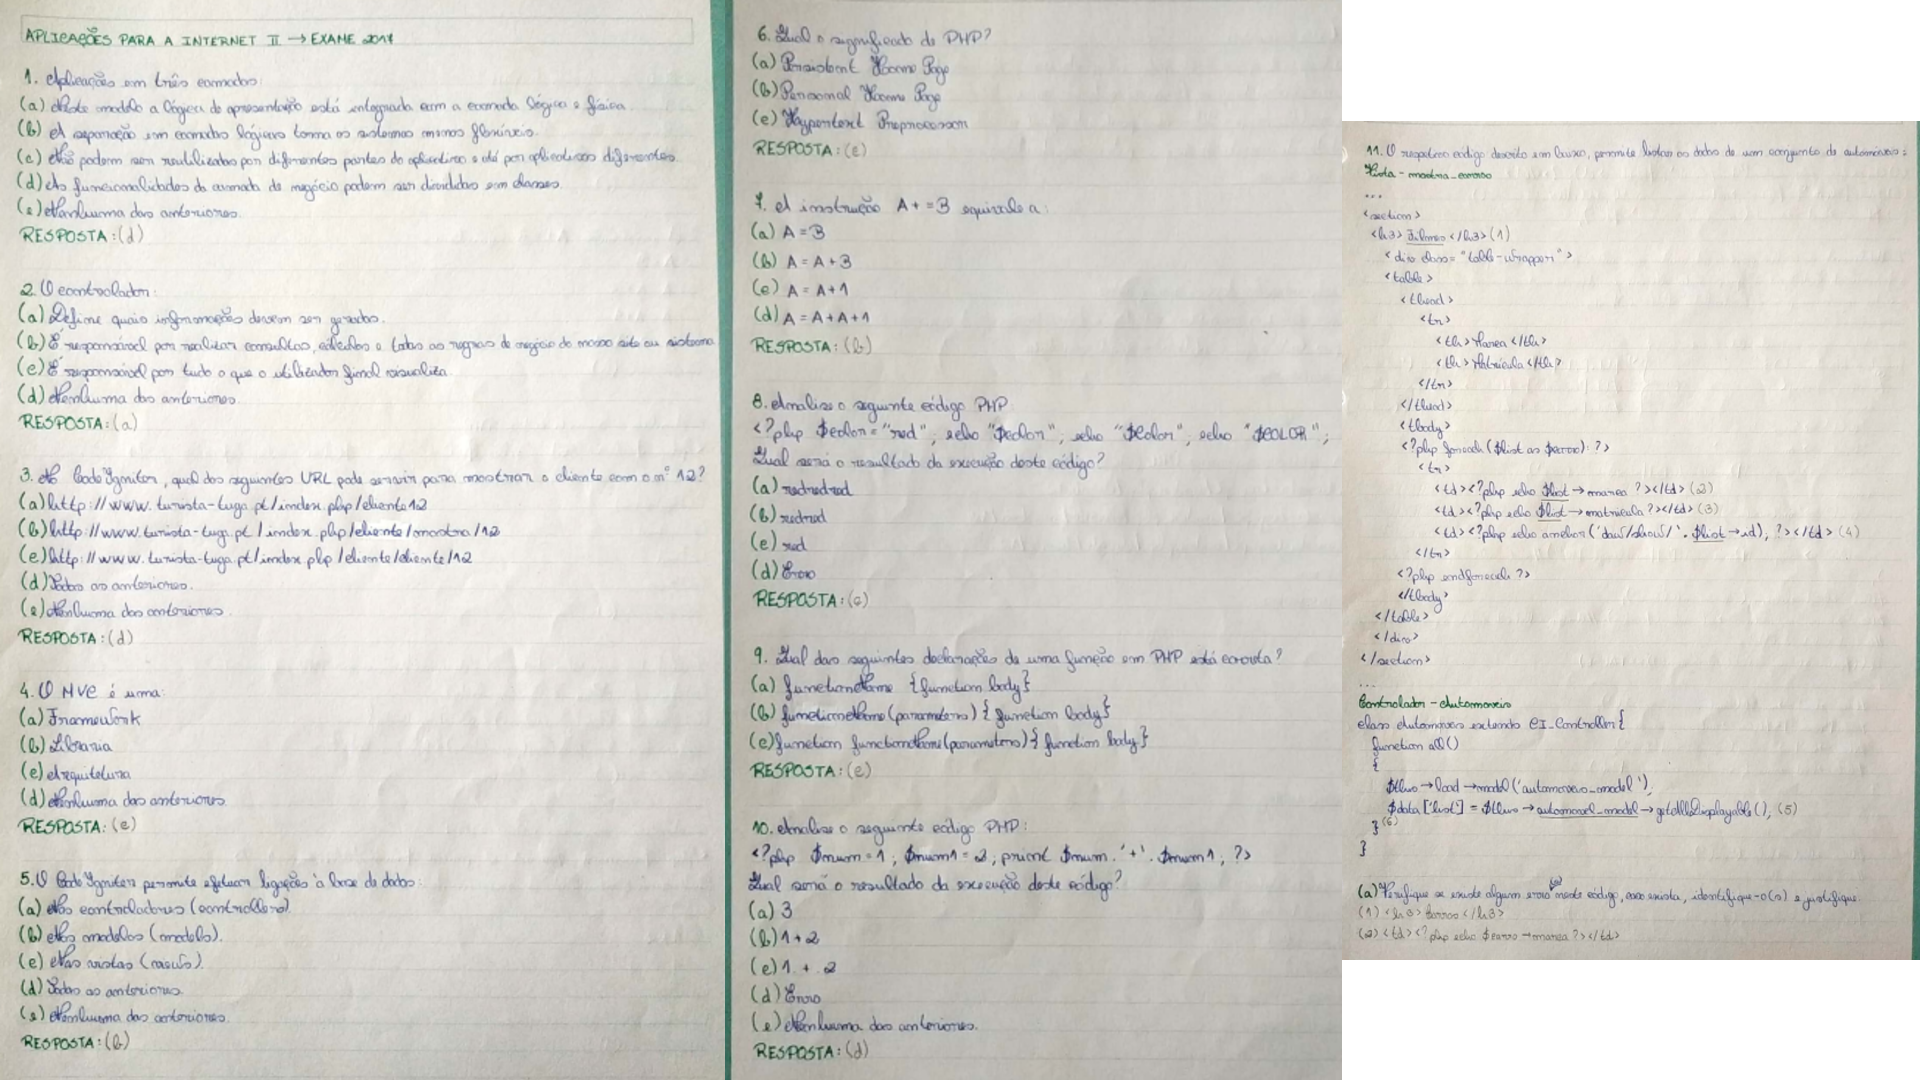 APLICAÇÕES PARA A INTERNET II → EXAME 2017
1. Aplicações em três camadas:
(a) Neste modelo a lógica de apresentação está integrada com a camada lógica e física.
(b) A separação em camadas lógicas torna os sistemas menos flexíveis.
(c) Não podem ser reutilizados por diferentes partes do aplicativo e até por aplicativos diferentes.
(d) As funcionalidades da camada de negócio podem ser divididas em classes.
(e) Nenhuma das anteriores.
RESPOSTA: (d)
2. O controlador:
(a) Define quais informações devem ser geradas.
(b) É responsável por realizar consultas, cálculos e todas as regras de negócio do nosso site ou sistema.
(c) É responsável por tudo o que o utilizador final visualiza.
(d) Nenhuma das anteriores.
RESPOSTA: (a)
3. No CodeIgniter, qual dos seguintes URL pode servir para mostrar o cliente com o nº 12?
(a) http://www.turista-tuga.pt/index.php/cliente12
(b) http://www.turista-tuga.pt/index.php/cliente/mostra/12
(c) http://www.turista-tuga.pt/index.php/cliente/cliente/12
(d) Todas as anteriores.
(e) Nenhuma das anteriores.
RESPOSTA: (d)
4. O MVC é uma:
(a) Framework
(b) Libraria
(c) Arquitetura
(d) Nenhuma das anteriores.
RESPOSTA: (c)
5. O CodeIgniter permite efetuar ligações à base de dados:
(a) Nos controladores (controllers).
(b) Nos modelos (models).
(c) Nas vistas (views).
(d) Todas as anteriores.
(e) Nenhuma das anteriores.
RESPOSTA: (b)
6. Qual o significado de PHP?
(a) Persistent Home Page
(b) Personal Home Page
(c) Hypertext Preprocessor
RESPOSTA: (c)
7. A instrução A+=3 equivale a:
(a) A=3
(b) A=A+3
(c) A=A+1
(d) A=A+A+1
RESPOSTA: (b)
8. Analise o seguinte código PHP:
<?php $color="red"; echo "$color"; echo "$Color"; echo "$COLOR";
Qual será o resultado da execução deste código?
(a) redredred
(b) redred
(c) red
(d) Erro
RESPOSTA: (c)
9. Qual das seguintes declarações de uma função em PHP está correta?
(a) functionName {function body}
(b) functionName(parameters) {function body}
(c) function functionName(parameters) {function body}
RESPOSTA: (c)
10. Analise o seguinte código PHP:
<?php $num=1; $num1=2; print $num.'+'.$num1; ?>
Qual será o resultado da execução deste código?
(a) 3
(b) 1+2
(c) 1.+.2
(d) Erro
(e) Nenhuma das anteriores.
RESPOSTA: (d)
11. O respetivo código descrito em baixo, permite listar os dados de um conjunto de automóveis:
Vista - mostra_carros
...
<section>
<h3> Filmes </h3> (1)
<div class="table-wrapper">
<table>
<thead>
<tr>
<th> Marca </th>
<th> Matrícula </th>
</tr>
</thead>
<tbody>
<?php foreach($list as $carro): ?>
<tr>
<td><?php echo $list→marca ?></td> (2)
<td><?php echo $list→matricula ?></td> (3)
<td><?php echo anchor('daw/show/'.$list→id), ?></td> (4)
</tr>
<?php endforeach ?>
</tbody>
</table>
</div>
</section>
...
Controlador - Automoveis
class Automoveis extends CI_Controller {
function all()
{
$this→load→model('automoveis_model');
$data['list'] = $this→automovel_model→getAllDisplayable(); (5)
} (6)
}
(a) Verifique se existe algum erro(s) neste código, caso exista, identifique-o(s) e justifique.
(1) <h3> Carros </h3>
(2) <td><?php echo $carro→marca ?></td>